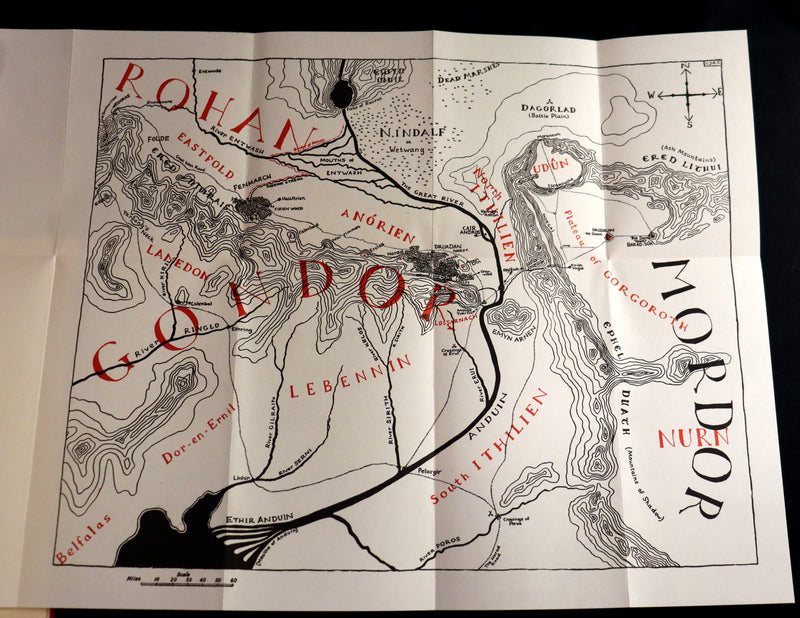 ROHAN
Entwade
EMYN
MUIL
DEAD MARSHES
N
W
E
S
DAGORLAD
(Battle Plain)
NINDALF
or
Wetwang
FOLDE
EASTFOLD
River ENTWASH
MOUTHS of
ENTWASH
(Ash Mountains)
ERED LITHUI
UDÛN
North
ITHILIEN
FENMARCH
Halifirien
FIRIEN WOOD
THE GREAT RIVER
ANÓRIEN
CAIR
DRUADAN
FOREST
Plateau of GORGOROTH
BARAD-DUR
LAMEDON
Calembel
River RINGLO
Ethring
GONDOR
LOSSARNACH
EMYN ARNEN
MORDOR
EPHEL
DUATH
(Mountains of Shadow)
LEBENNIN
River GILRAIN
River SERNI
River SIRITH
River ERUI
ANDUIN
South ITHILIEN
NURN
Dor-en-Ernil
Linhir
Pelargir
ETHIR ANDUIN
Belfalas
River POROS
Crossings
of Poros
Scale
Miles 10 20 30 40 50 60